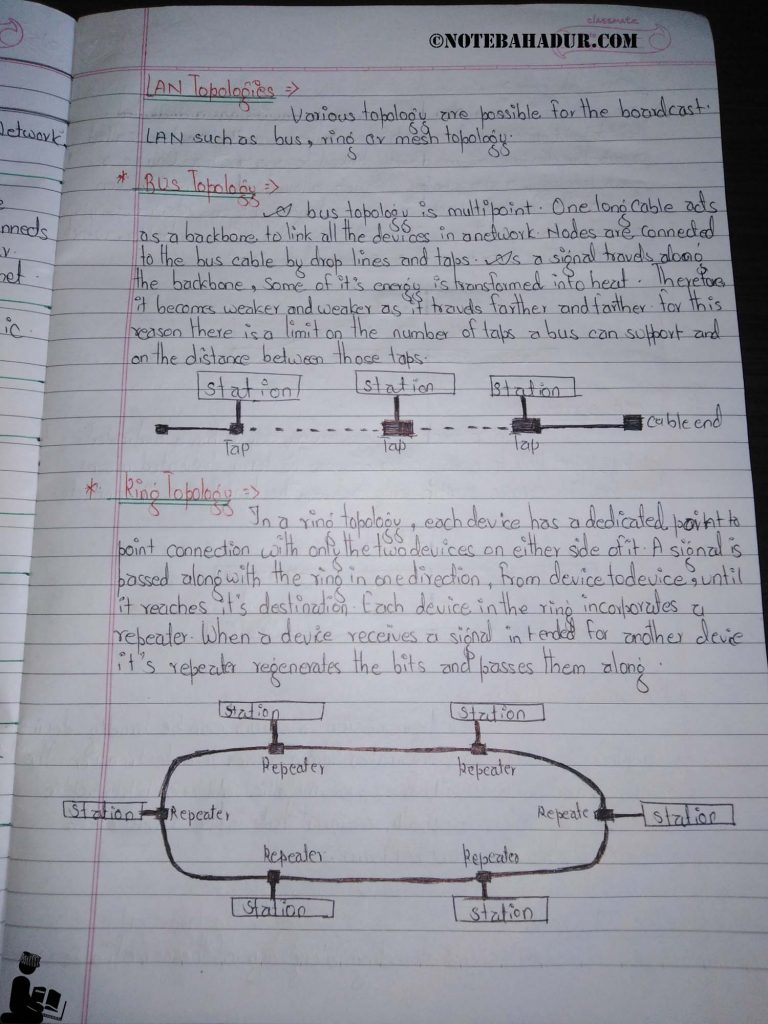 classmate
©NOTEBAHADUR.COM
LAN Topologies =>
Various topology are possible for the boardcast.
LAN such as bus, ring or mesh topology.
* BUS Topology =>
A bus topology is multipoint. One long cable acts
as a backbone to link all the devices in a network. Nodes are connected
to the bus cable by drop lines and taps. As a signal travels along
the backbone, some of it's energy is transformed into heat. Therefore
it becomes weaker and weaker as it travels farther and farther for this
reason there is a limit on the number of taps a bus can support and
on the distance between those taps.
Station Station Station
Cable end
Tap Tap Tap
* Ring Topology =>
In a ring topology, each device has a dedicated point to
point connection with only the two devices on either side of it. A signal is
passed along with the ring in one direction, from device to device, until
it reaches it's destination. Each device in the ring incorporates a
repeater. When a device receives a signal intended for another device
it's repeater regenerates the bits and passes them along.
Station Station
Repeater Repeater
Station Repeater Repeate Station
Repeater Repeater
Station Station
etwork
nneds
ic.